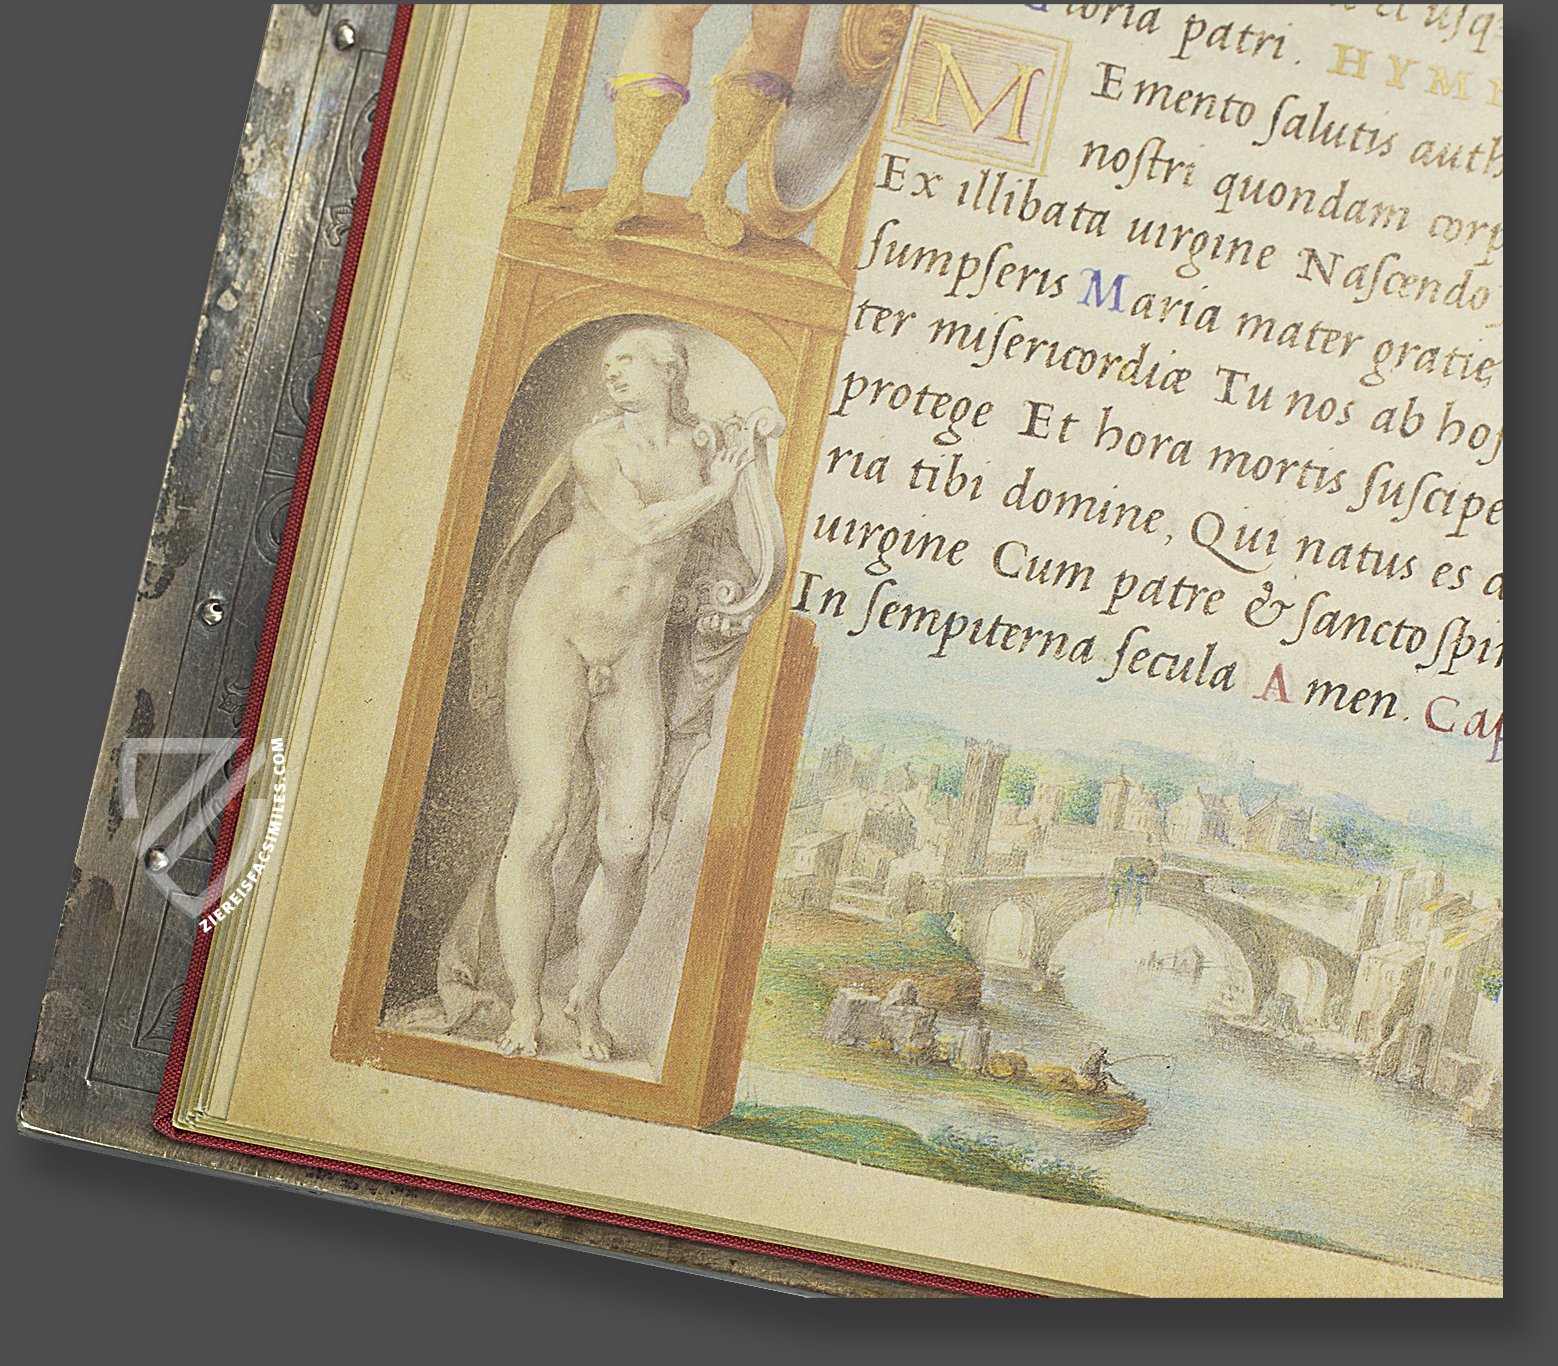 Gloria patri. HYM
M
Emento ſalutis auth
noſtri quondam corp
Ex illibata uirgine Naſcendo
ſumpſeris Maria mater gratie,
ter miſericordiæ Tu nos ab hoſ
protege Et hora mortis ſuſcipe
ria tibi domine, Qui natus es a
uirgine Cum patre & ſancto ſpir
In ſempiterna ſecula Amen. Cap
ZIEREISFACSIMILES.COM